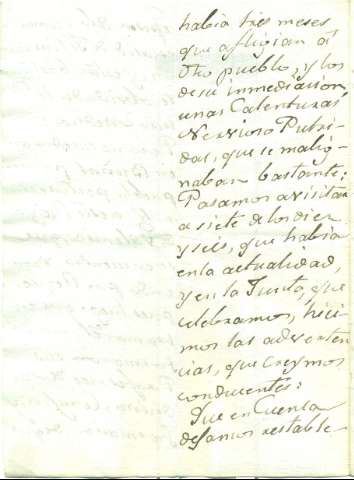 habia tres meses
que afligian á
dho pueblo, y los
de su inmediacion
unas Calenturas
Nervioso Putri-
das, que se malig-
naban bastante:
Pasamos a visitar
a siete de los diez
y seis, que habia
en la actualidad,
y en la Junta, que
celebramos, hici
mos las adverten
cias, que creymos
conducentes:
Que en Cuenta
dejamos restable